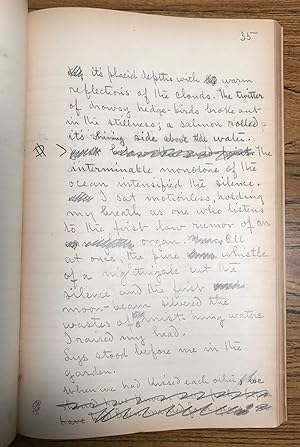 35
its placid depths with warm
reflections of the clouds. The twitter
of drowsy hedge-birds broke out
in the stillness; a salmon rolled
its shining side above the water.
The
interminable monotone of the
ocean intensified the silence.
I sat motionless, holding
my breath as one who listens
to the first low rumor of an
organ. All
at once, the pure whistle
of a nightingale cut the
silence and the first
moon-beam silvered the
wastes of mist hung waters.
I raised my head.
Sys stood before me in the
garden.
When we had kissed each other, we